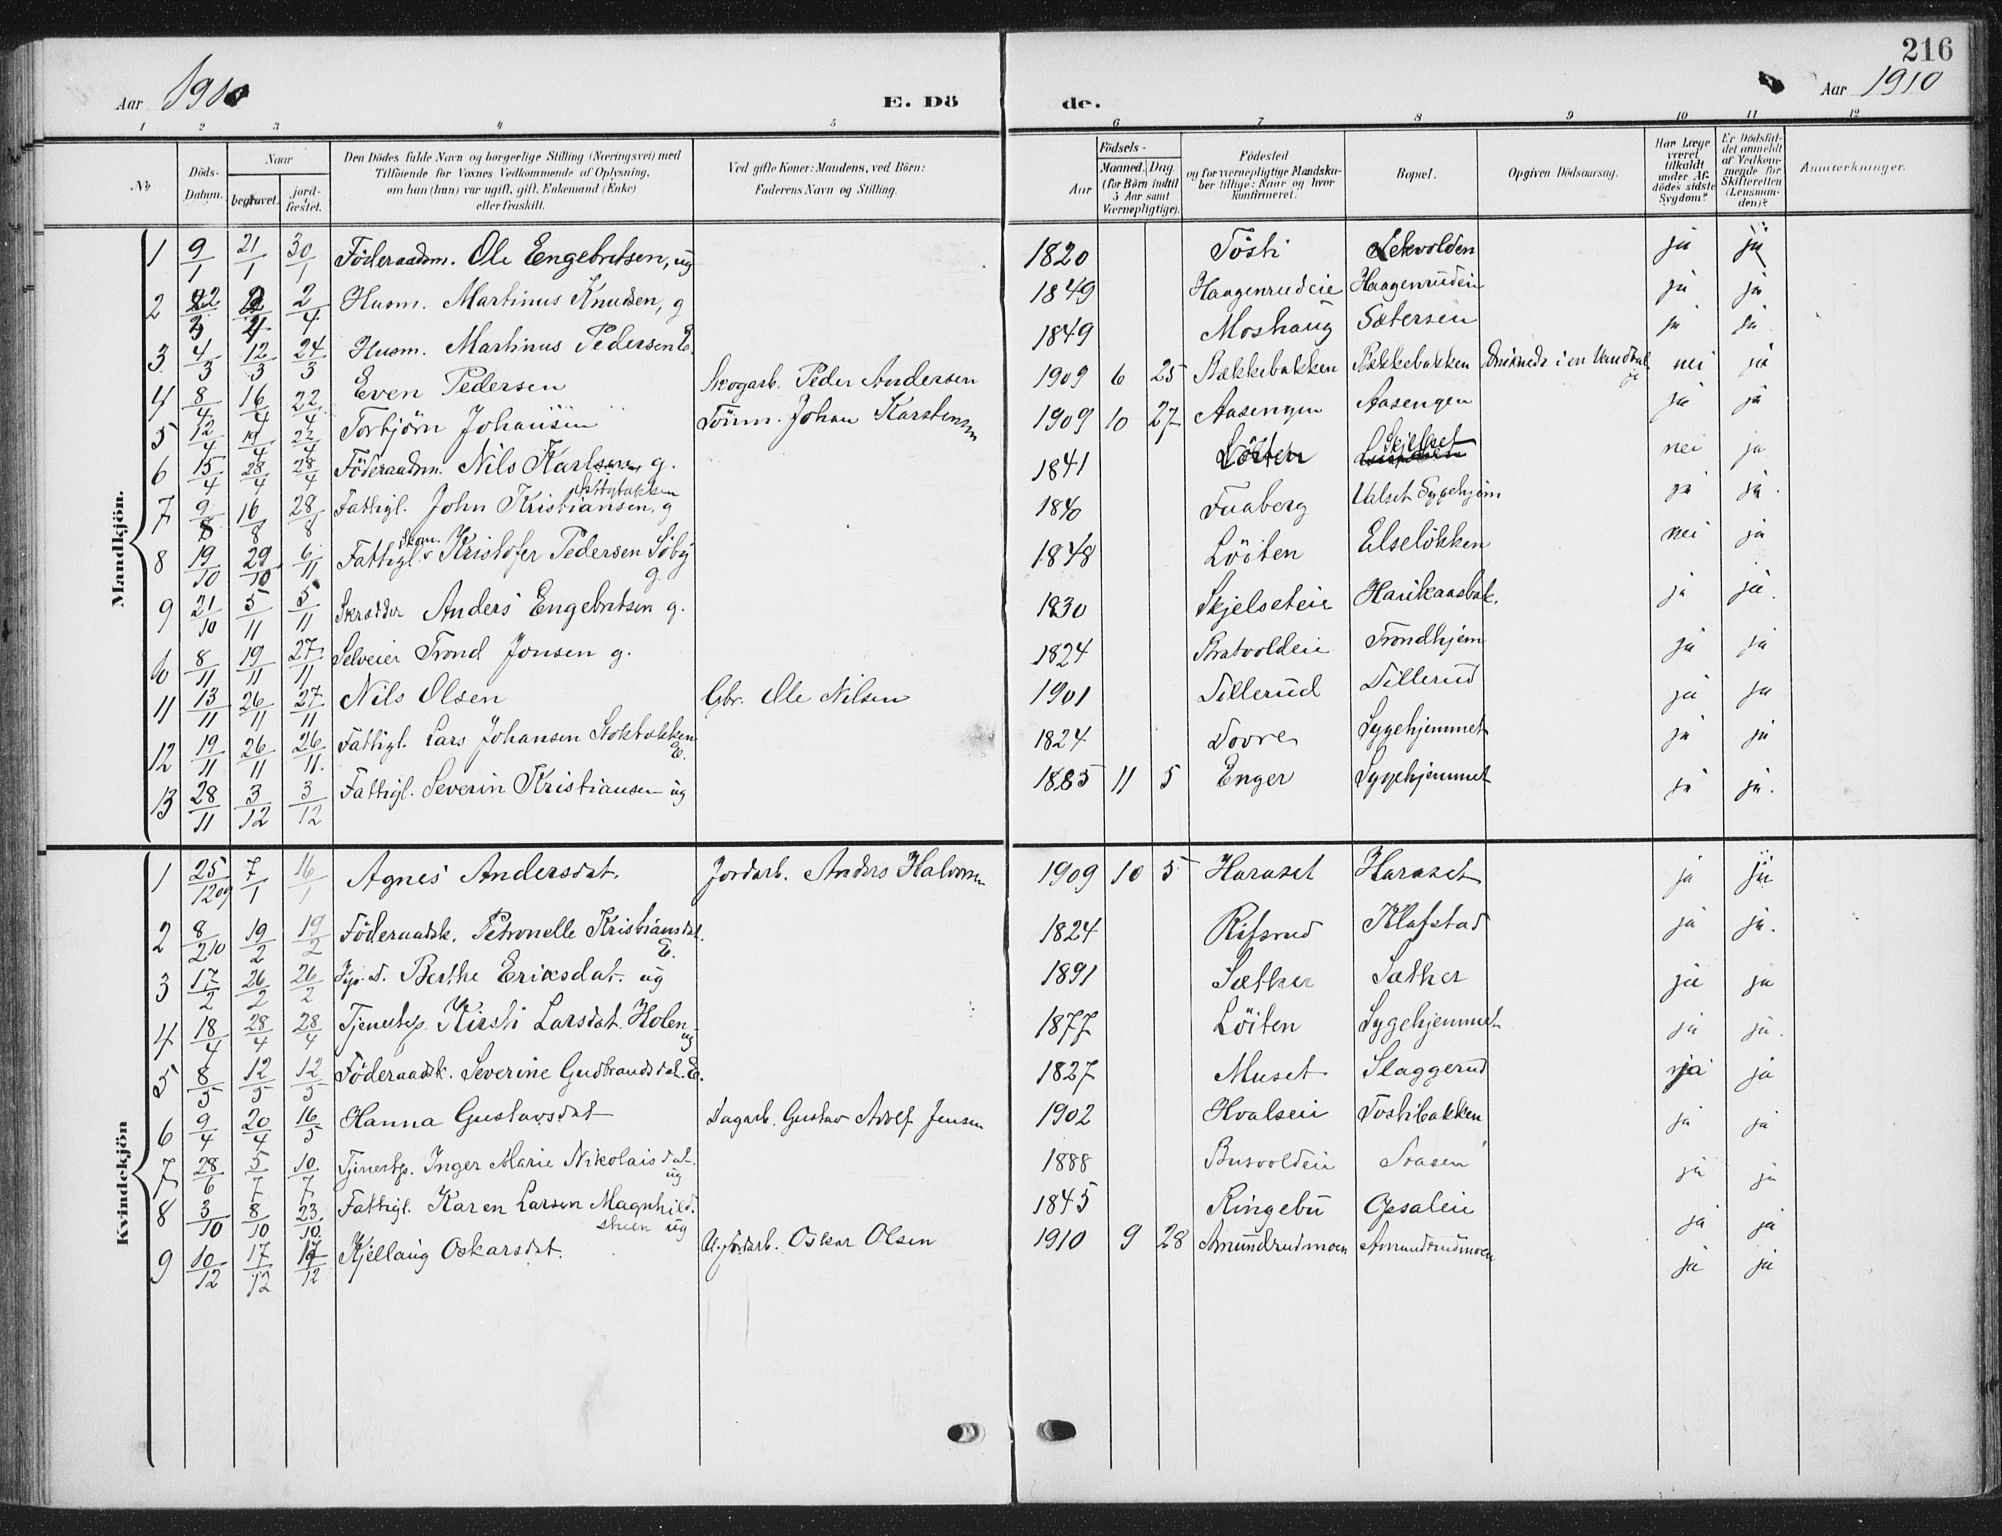 216
Aar 1910
E. Dö
de.
Aar 1910
1 2 3 4 5 6 7 8 9 10 11 12
No
Döds-Datum.
Naar
begravet.
jord-fæstet.
Den Dödes fulde Navn og borgerlige Stilling (Næringsvei) med
Tilföiende for Voxnes Vedkommende af Oplysning,
om han (hun) var ugift, gift, Enkemand (Enke)
eller fraskilt.
Ved gifte Koner: Mandens, ved Börn:
Faderens Navn og Stilling.
Födsels-
Aar
Maaned. Dag.
(for Börn indtil
5 Aar samt
Værnepligtige).
Födested
og for værnepligtige Mandska-
ber tillige: Naar og hvor
konfirmeret.
Bopæl.
Opgiven Dödsaarsag.
Har Læge
været
tilkaldt
under Af-
dödes sidste
Sygdom?
Er Dödsfal-
det anmeldt
af Vedkom-
mende for
Skifteretten
(Lensman-
den)?
Anmerkninger.
Mandkjön.
1 9/1 21/1 30/1 Föderaadsm. Ole Engebretsen, ug 1820 Tösti Lekvolden ja ja
2 22/3 2/4 2/4 Husm. Martinus Knudsen, g 1849 Haagenrudeie Haagenrudeie ja ja
3 4/3 12/3 24/3 Husm. Martinus Pedersen E. 1849 Moshaug Sætersen ja ja
4 8/4 16/4 22/4 Even Pedersen Skogarb. Peder Andersen 1909 6 25 Bækkebakken Bækkebakken Druknede i en Vandbal nei ja
5 12/4 19/4 22/4 Torbjörn Johansen Tömm. Johan Karstensen 1909 10 27 Aasengen Aasengen ja ja
6 15/4 28/4 28/4 Föderaadsm. Nils Karlsen, g. 1841 Löiten Skjelset nei ja
7 9/8 16/8 28/8 Fattigl. John Kristiansen, g 1840 Faaberg Valset Sygehjem ja ja.
8 19/10 29/10 6/11 Fattigl. Skom. Kristofer Pedersen Söby g. 1848 Löiten Elselökken nei ja
9 21/10 5/11 5/11 Skrædder Anders Engebretsen g. 1830 Skjelseteie Harikaasbak. ja ja.
10 8/11 19/11 27/11 Selveier Trond Jonsen g. 1824 Bratvoldeie Trondhjem ja ja
11 13/11 26/11 27/11 Nils Olsen Gbr. Ole Nilsen 1901 Tillerud Tillerud ja ja
12 19/11 26/11 26/11. Fattigl. Lars Johansen Stokbakken E. 1824 Dovre Sygehjemmet ja ja
13 28/11 3/12 3/12 Fattigl. Severin Kristiansen ug 1885 11 5 Enger Sygehjemmet ja ja.
Kvindekjön
1 25/12 09 7/1 16/1 Agnes Andersdat. Jordarb. Anders Halvorsen 1909 10 5 Haraset Haraset ja ja
2 8/2 10 19/2 19/2 Föderaadsk. Petronelle Kristiansdat. E. 1824 Ritsrud Klafstad ja ja.
3 17/2 26/2 26/2 Berthe Eriksdat. ug 1891 Sæther Sæther ja ja
4 18/4 28/4 28/4 Tjenestep. Kirsti Larsdat. Holen ug 1877 Löiten Sygehjemmet ja ja.
5 8/5 12/5 12/5 Föderaadsk. Severine Gudbrandsdat. E. 1827 Muset Slaggerud ja ja
6 9/4 20/4 16/5 Hanna Gustavsdat Dagarb. Gustav Adolf Jensen 1902 Hvalseie Tostibakken ja ja
7 28/6 5/7 10/7 Tjenestp. Inger Marie Nikolaisdat. ug 1888 Busvoldeie Stasen ja ja
8 3/10 8/10 23/10. Fattigl. Karen Larsen Magnhild- stuen ug 1845 Ringebu Opsaleie ja ja
9 10/12 17/12 17/12 Kjellaug Oskarsdat. U. f. Jordarb. Oskar Olsen 1910 9 28 Amundrudmoen Amundrudmoen ja ja